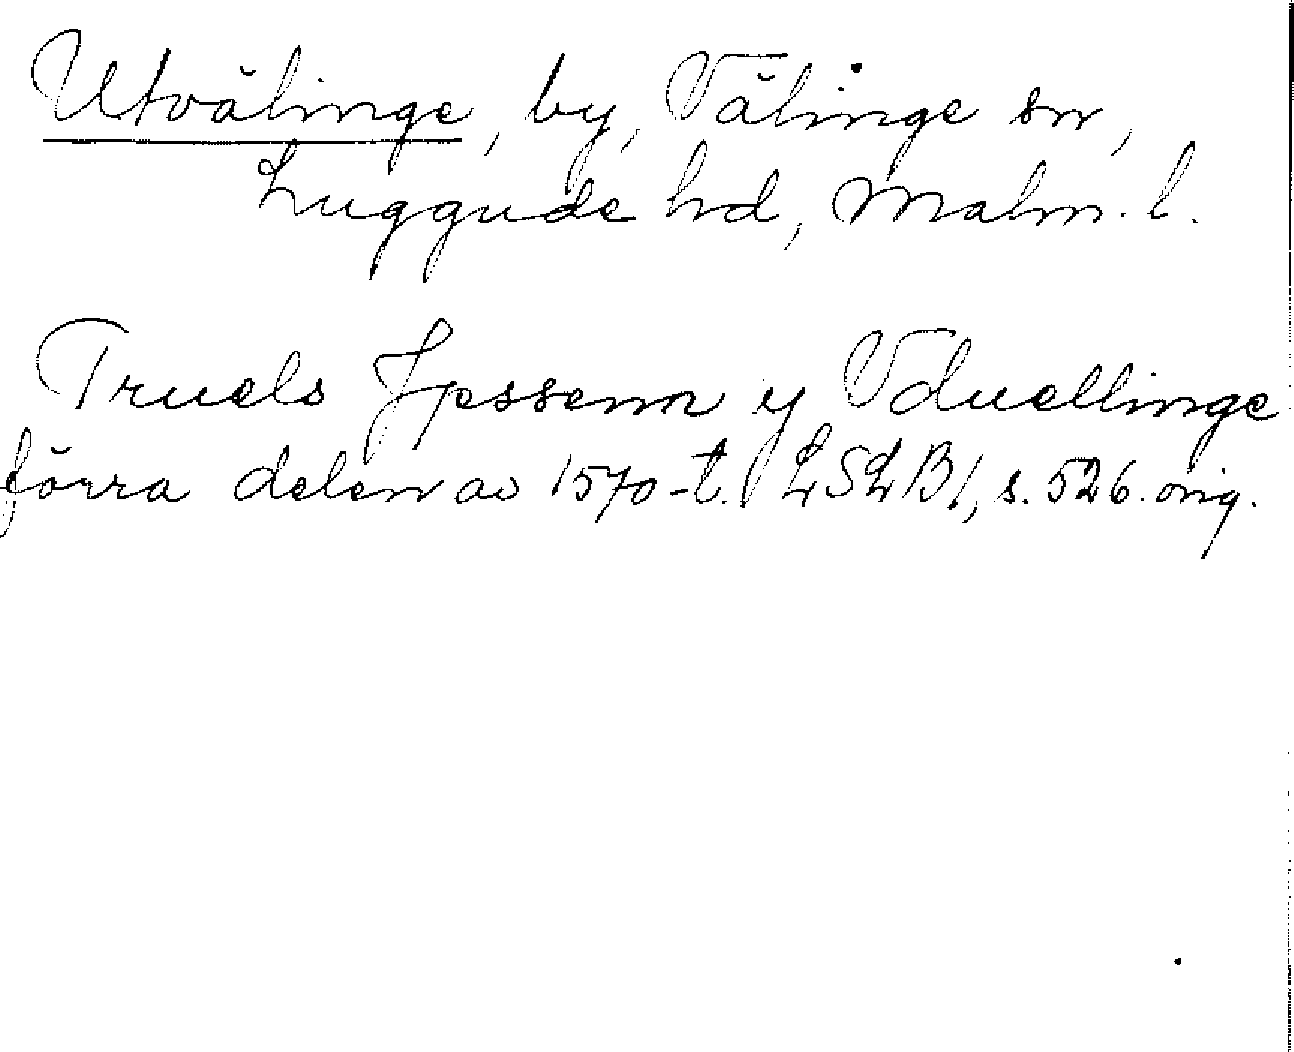 Utvälinge, by, Välinge sn,
Luggude hd, Malm. l.
Truels Jpssenn y Vduellinge
förra delen av 1570-t. LSLB1, s. 526. orig.